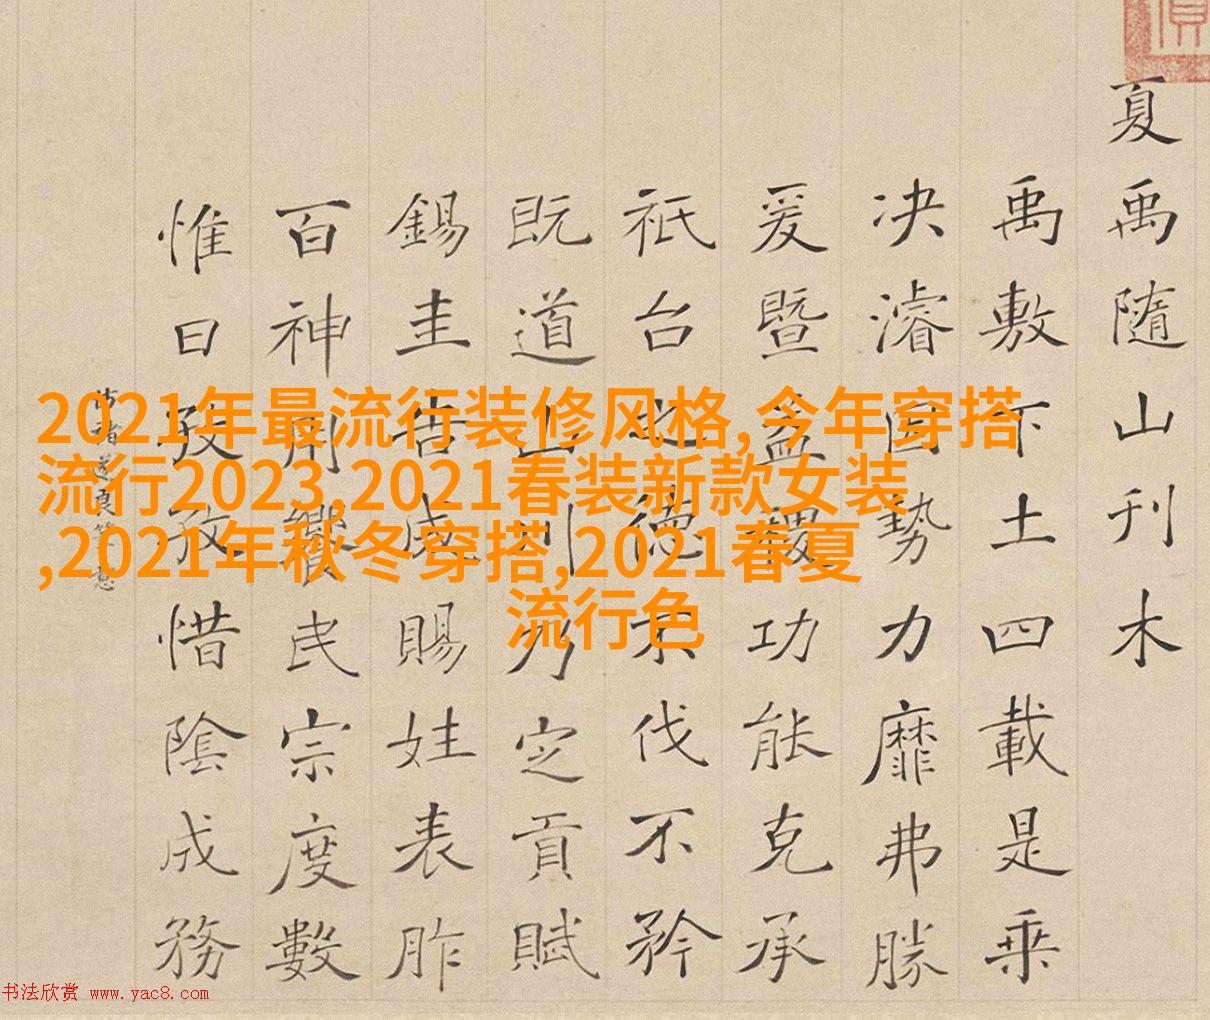 2021年最流行装修风格,今年穿搭
流行2023,2021春装新款女装
,2021年秋冬穿搭,2021春夏
流行色
夏禹隨山刊木
禹敷下土四載是乗
决濬因勢力靡弗勝
爰暨益稷功能克承
祗台之德不伐不矜
既道山川乃定貢賦
錫圭告成賜姓表胙
百神用饗民宗度數
惟日孜孜惜陰成務
仿褚遂良筆意
书法欣赏 www.yac8.com